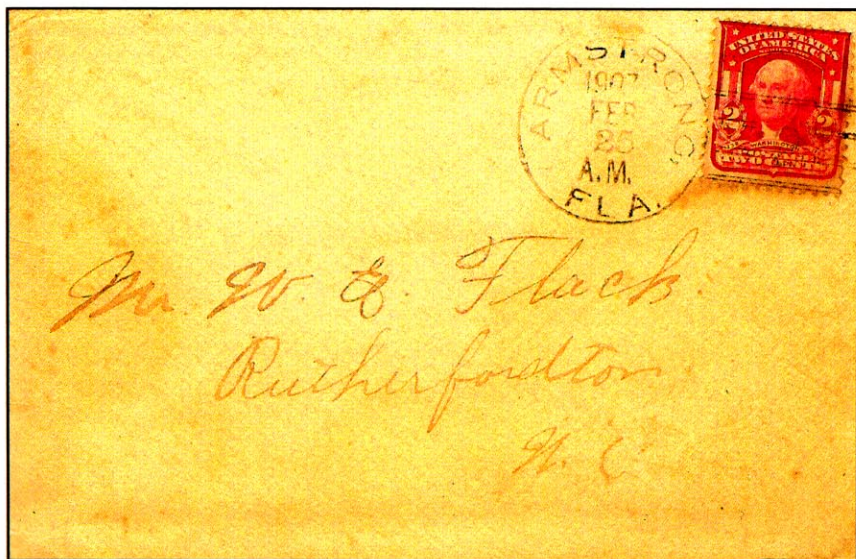 ARMSTRONG,
1907
FEB
25
A.M.
FLA.
UNITED STATES
OF AMERICA
2 2
WASHINGTON
Mr. W. E. Flack.
Rutherfordton
N. C